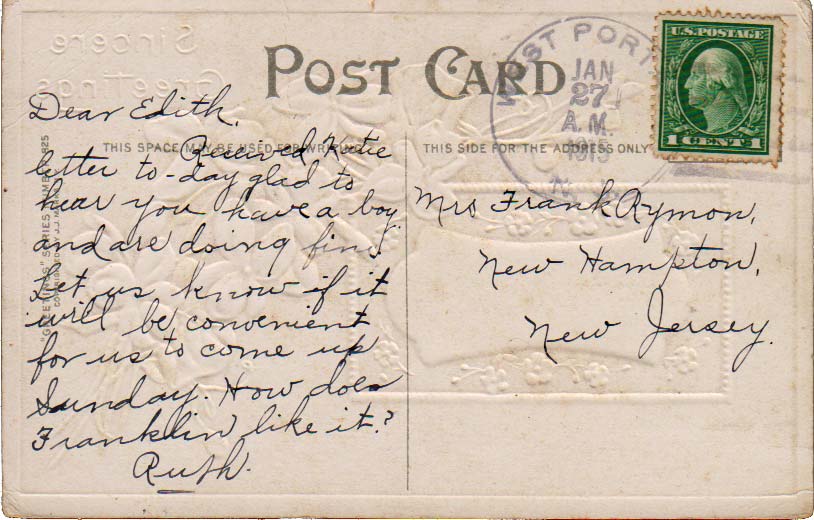 Sincere
Greetings
POST CARD
WEST PORT
JAN
27
A.M.
U.S. POSTAGE
1 CENT 1
THIS SPACE MAY BE USED FOR WRITING
THIS SIDE FOR THE ADDRESS ONLY
Dear Edith,
Received Katie
letter to-day glad to
hear you have a boy
and are doing fine
Let us know if it
will be convenient
for us to come up
Sunday. How does
Franklin like it?
Ruth.
Mrs Frank Rymon,
New Hampton,
New Jersey.
"GREETINGS" SERIES NUMBER 825